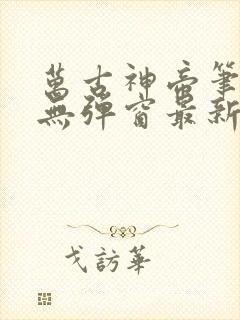 萬古神帝筆
無彈窗最新
戈訪華